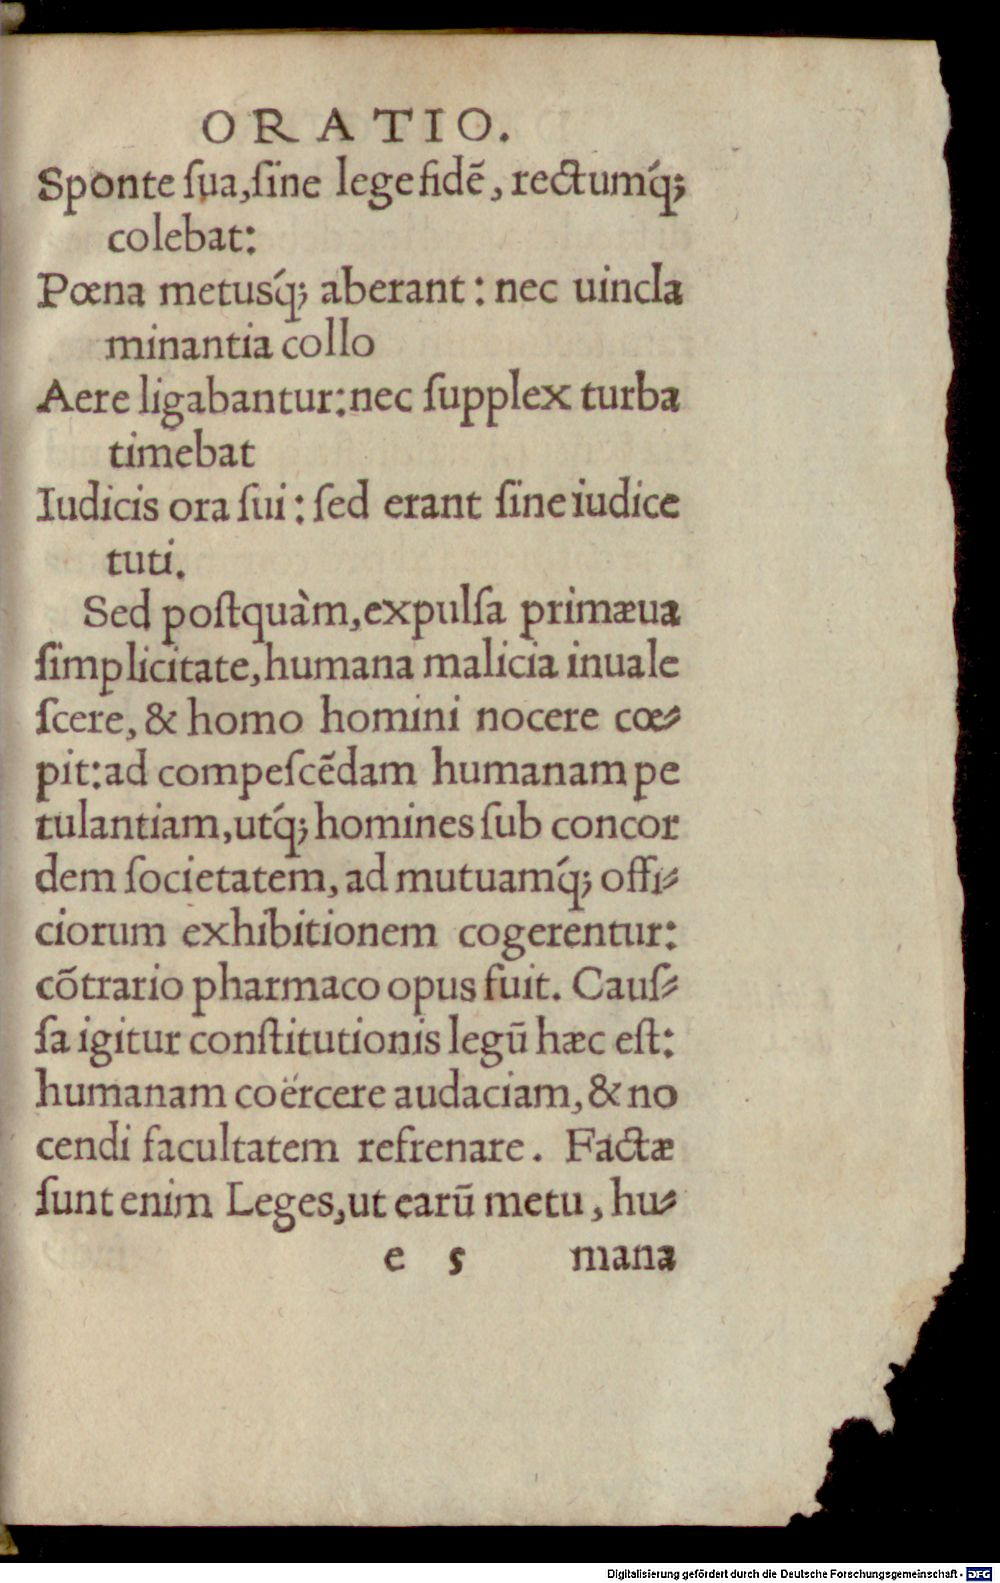 ORATIO.
Sponte ſua,ſine lege fidē, rectumq́;
colebat:
Pœna metusq́; aberant : nec uincla
minantia collo
Aere ligabantur:nec ſupplex turba
timebat
Iudicis ora ſui : ſed erant ſine iudice
tuti.
Sed poſtquàm,expulſa primæua
ſimplicitate,humana malicia inuale
ſcere, & homo homini nocere cœ⸗
pit:ad compeſcēdam humanam pe
tulantiam,utq́; homines ſub concor
dem ſocietatem, ad mutuamq́; offi⸗
ciorum exhibitionem cogerentur:
cōtrario pharmaco opus fuit. Cauſ⸗
ſa igitur conſtitutionis legū hæc eſt:
humanam coërcere audaciam, & no
cendi facultatem refrenare. Factæ
ſunt enim Leges,ut earū metu, hu⸗
e 5 mana
Digitalisierung gefördert durch die Deutsche Forschungsgemeinschaft - DFG